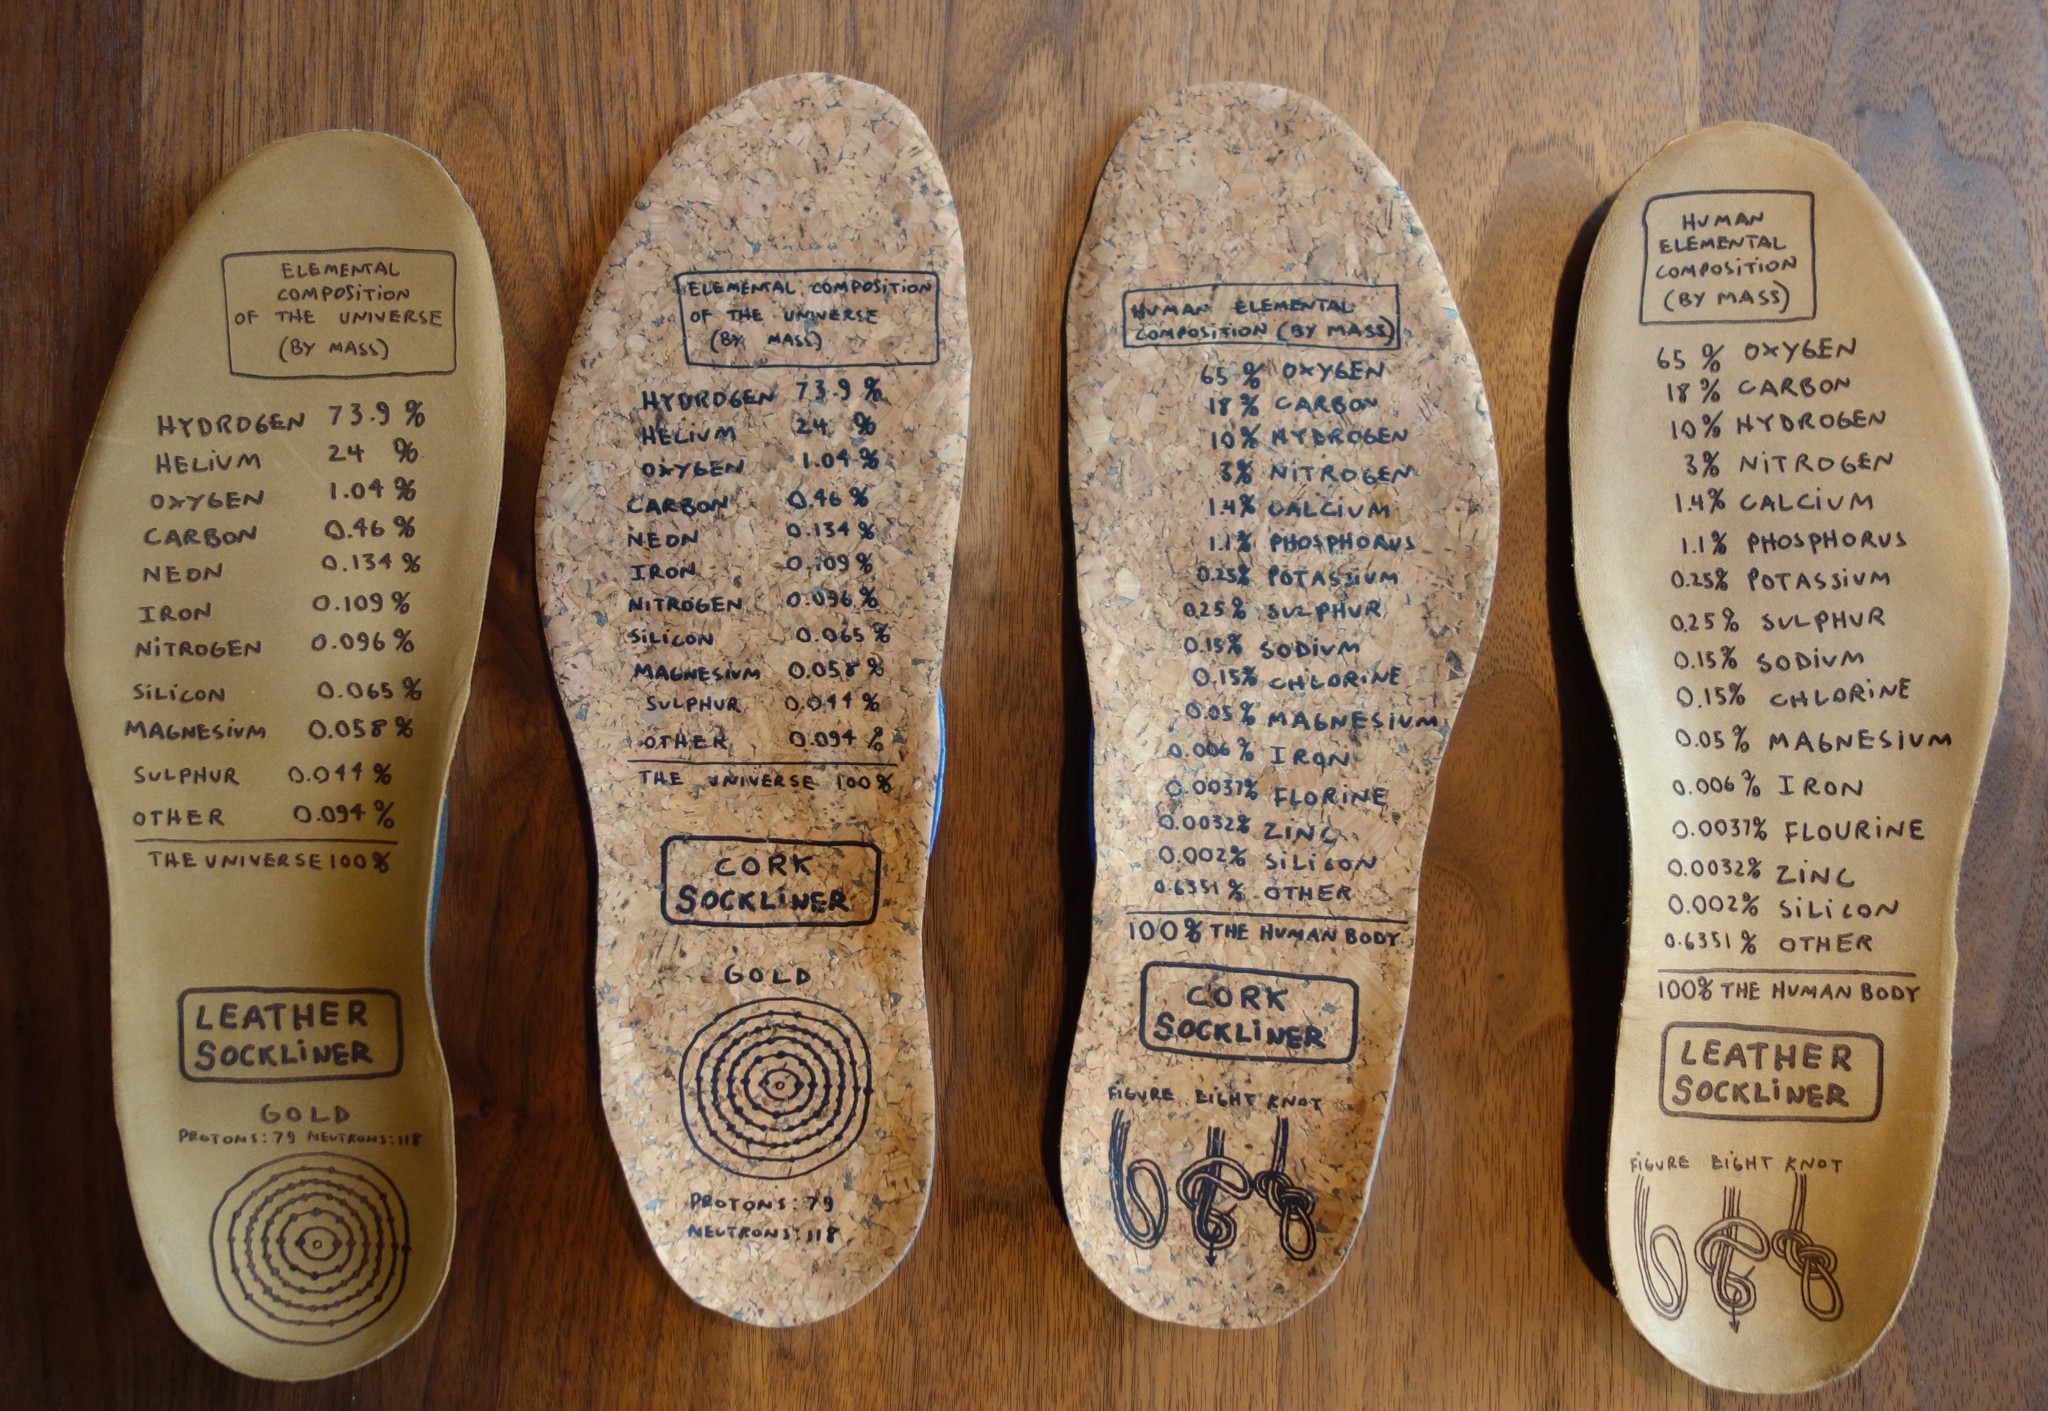 ELEMENTAL
COMPOSITION
OF THE UNIVERSE
(BY MASS)
HYDROGEN 73.9 %
HELIUM 24 %
OXYGEN 1.04 %
CARBON 0.46 %
NEON 0.134 %
IRON 0.109 %
NITROGEN 0.096 %
SILICON 0.065 %
MAGNESIUM 0.058 %
SULPHUR 0.044 %
OTHER 0.094 %
THE UNIVERSE 100%
LEATHER
SOCKLINER
GOLD
PROTONS: 79 NEUTRONS: 118
ELEMENTAL COMPOSITION
OF THE UNIVERSE
(BY MASS)
HYDROGEN 73.9 %
HELIUM 24 %
OXYGEN 1.04 %
CARBON 0.46 %
NEON 0.134 %
IRON 0.109 %
NITROGEN 0.096 %
SILICON 0.065 %
MAGNESIUM 0.058 %
SULPHUR 0.044 %
OTHER 0.094 %
THE UNIVERSE 100%
CORK
SOCKLINER
GOLD
PROTONS: 79
NEUTRONS: 118
HUMAN ELEMENTAL
COMPOSITION (BY MASS)
65 % OXYGEN
18 % CARBON
10% HYDROGEN
3% NITROGEN
1.4% CALCIUM
1.1% PHOSPHORUS
0.25% POTASSIUM
0.25% SULPHUR
0.15% SODIUM
0.15% CHLORINE
0.05% MAGNESIUM
0.006 % IRON
0.0037% FLORINE
0.0032% ZINC
0.002% SILICON
0.6351 % OTHER
100% THE HUMAN BODY
CORK
SOCKLINER
FIGURE EIGHT KNOT
HUMAN
ELEMENTAL
COMPOSITION
(BY MASS)
65 % OXYGEN
18 % CARBON
10% HYDROGEN
3% NITROGEN
1.4% CALCIUM
1.1% PHOSPHORUS
0.25% POTASSIUM
0.25% SULPHUR
0.15% SODIUM
0.15% CHLORINE
0.05% MAGNESIUM
0.006 % IRON
0.0037% FLOURINE
0.0032% ZINC
0.002% SILICON
0.6351 % OTHER
100% THE HUMAN BODY
LEATHER
SOCKLINER
FIGURE EIGHT KNOT